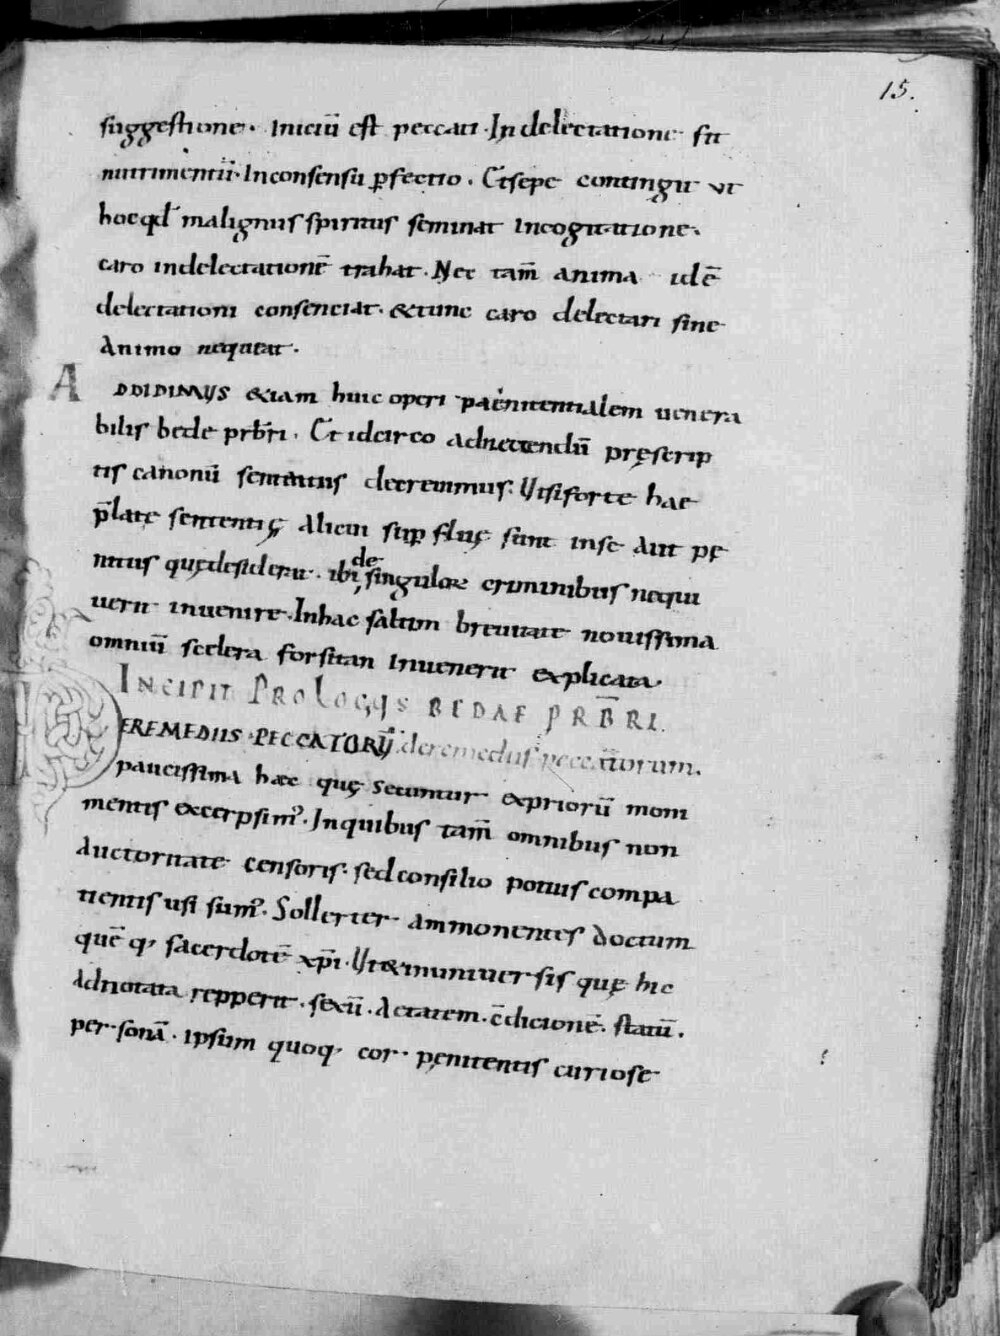 15.
suggestione. Iniciū est peccati. In delectatione fit
nutrimentū. Inconsensu ꝑfectio. Et sepe contingit ut
hoc qđ malignus spiritus seminat incogitatione.
caro indelectationē trahat. Nec tam̄ anima idē
delectationi consenciat. & tunc caro delectari sine
animo nequeat.
ADDIDIMUS & iam huic operi paenitentialem venera
bilis bede prb̄ri. Et idcirco adnectendū pręscrip
tis canonū sententiis decrevimus. Ut si forte hae
p̄latę sententię alicui suꝑfluę sunt in se aut pę
nitus quę desiderat. ibi de singulorꝫ criminibus nequi
verit invenire. In hac saltim brevitate novissima
omniū scelera forsitan invenerit explicata.
INCIPIT PROLOGUS BEDAE PRB̄RI.
DEREMEDIIS PECCATORŪ. de remediis peccatorum.
paucissima haec quę secuntur expriorū moni
mentis excerpsim᾽. In quibus tam̄ omnibus non
auctoritate censoris. sed consilio potius compa
tientis usi sum᾽. Sollerter ammonentes doctum
quēq᾽ sacerdotē xp̄i. Ut & in universis quę hic
adnotata repperit. sexū. Aetatem. c̄dicionē. statū.
personā. ipsum quoq᾽ cor penitentis curiose